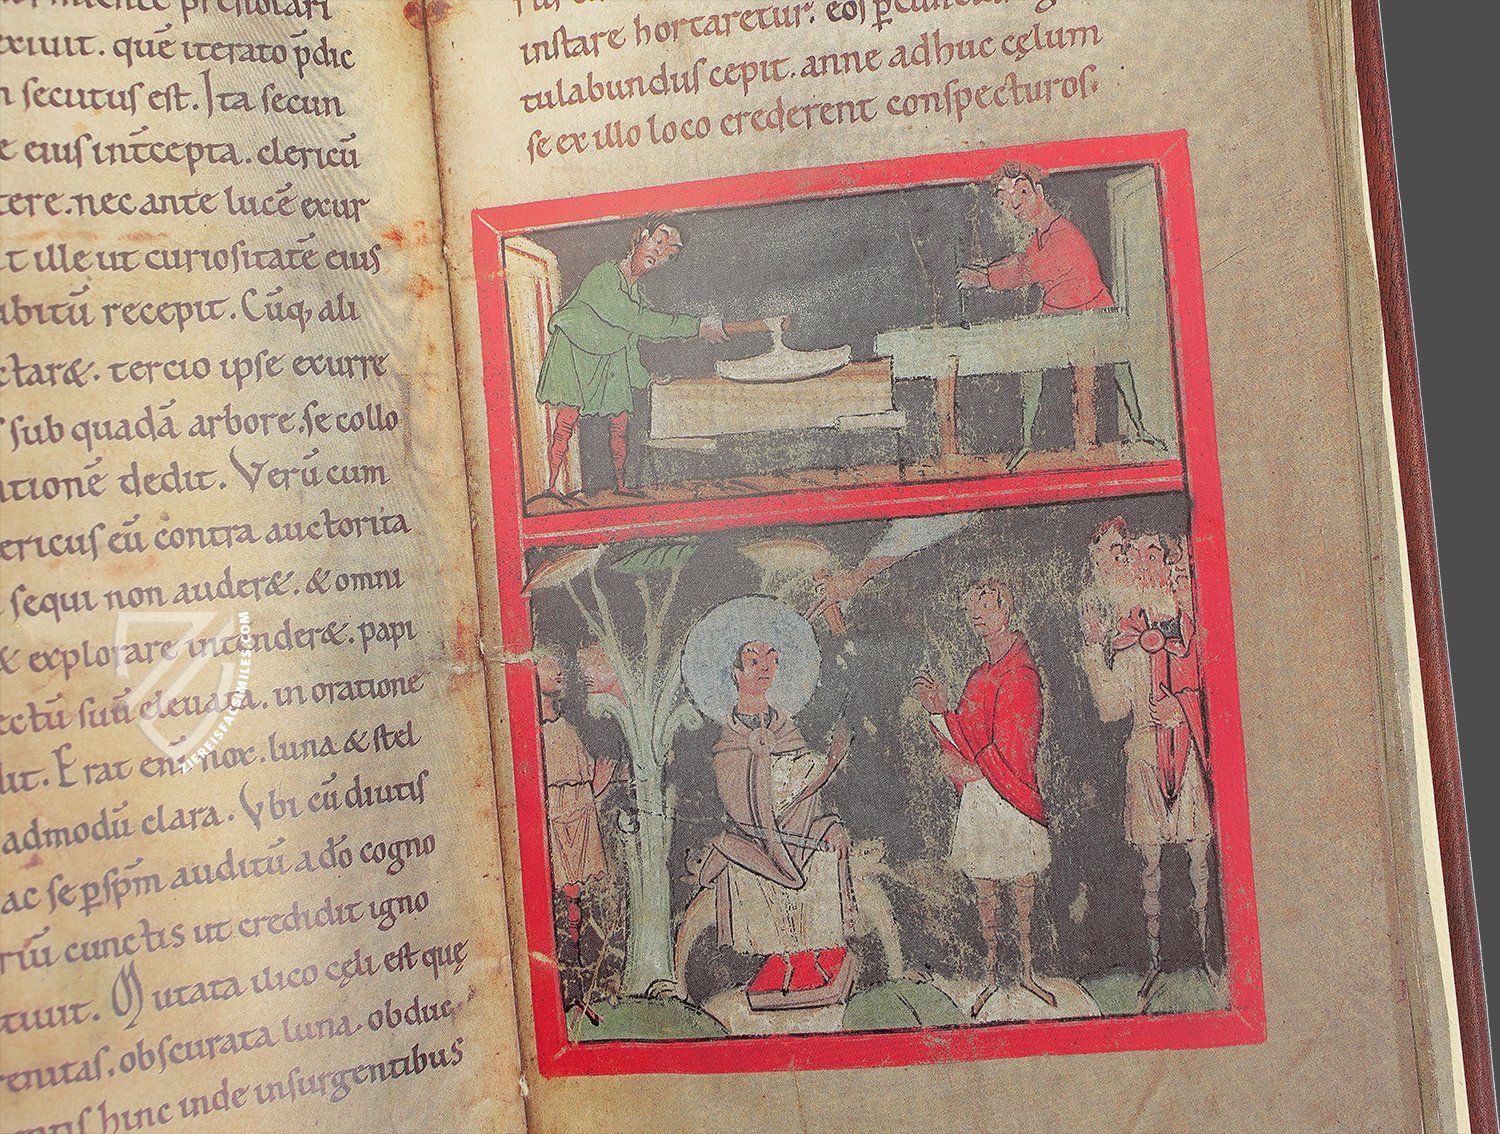 exiuit. quē iterato p̄dic
secutus est. Ita secun
eius int̄cepta. clericū
nec ante lucē exur
ille ut curiositatē eius
recepit. Cūq; ali
tercio ipse exurre
sub quadā arbore. se collo
dedit. Verū cum
eū contra auctorita
sequi non auder&. & omni
& explorare intender&. papi
suū eleuata. in oratione
Erat enī nox. luna & stel
admodū clara. Vbi cū diutis
ac se ꝑsp̄m auditū a dō cogno
cunctis ut credidit igno
Mutata ilico cęli est quę
obscurata luna. obduc
hinc inde insurgentibus
instare hortaretur. eos
tulabundus cepit. anne adhuc cęlum
se ex illo loco crederent conspecturos.
ZIEREISFACSIMILES.COM